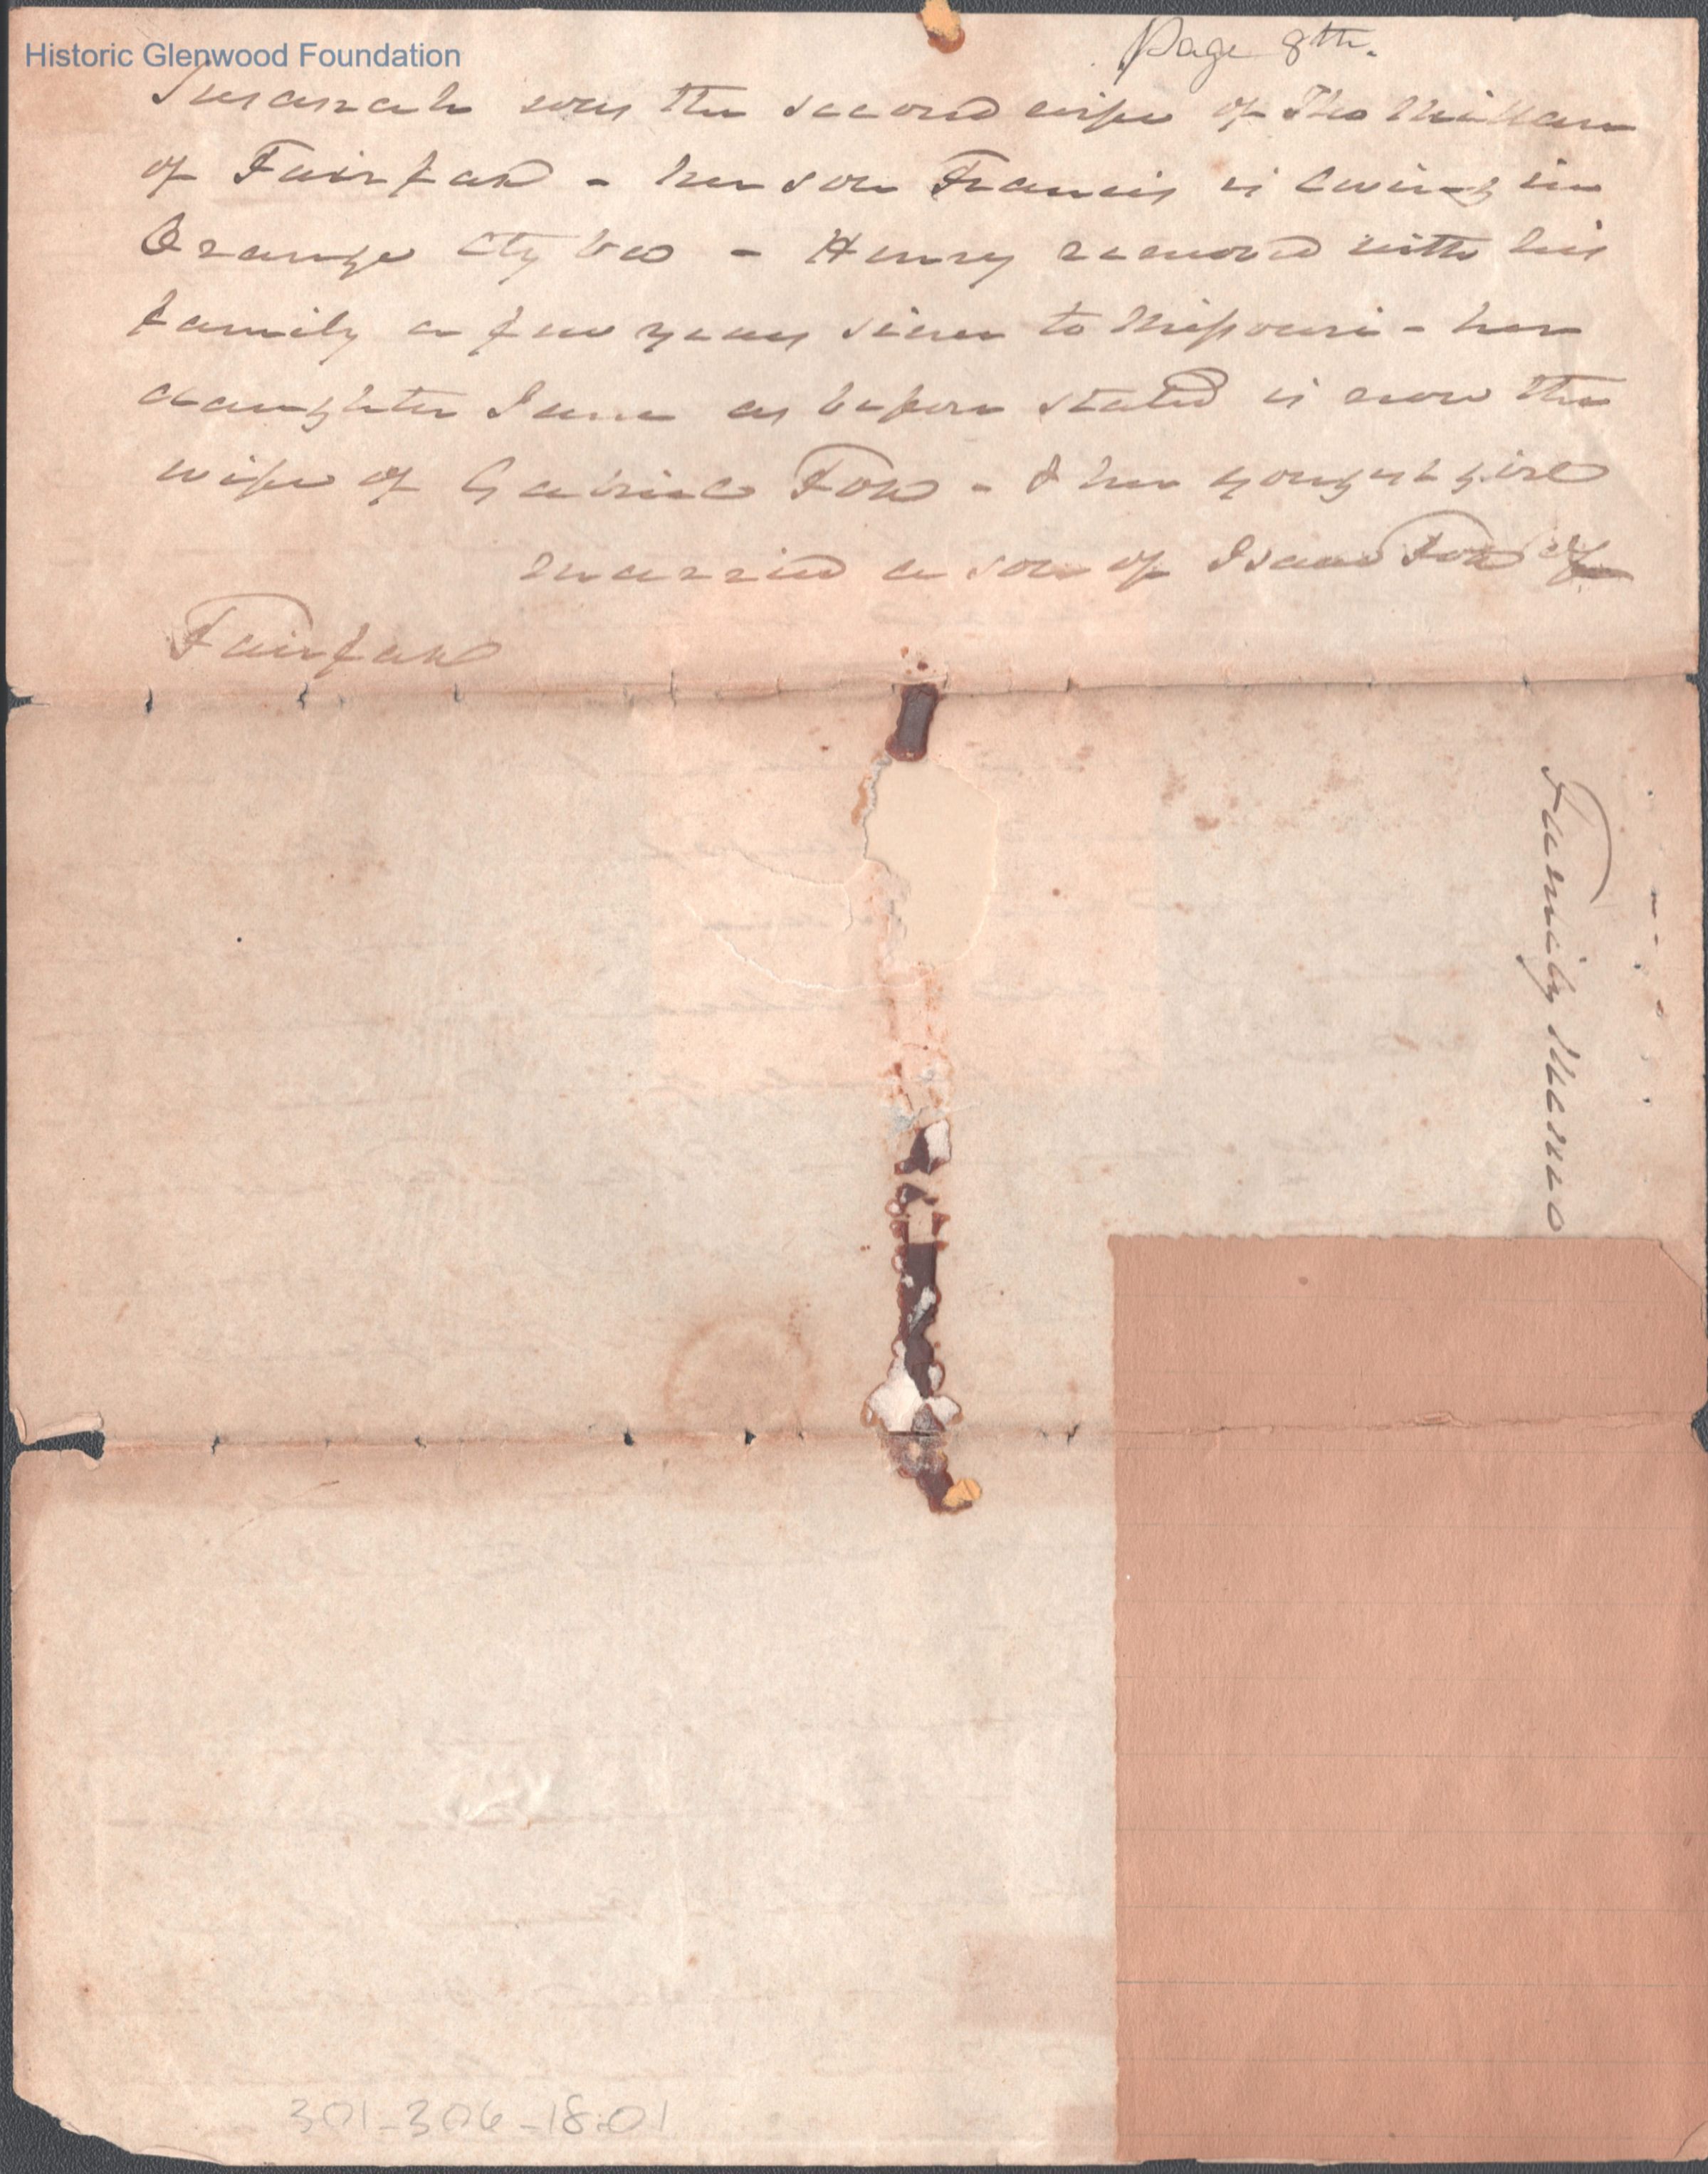 Historic Glenwood Foundation
Page 8th.
Susanah was the second wife of Tho Millan
of Fairfax - her son Francis is living in
Orange Cty Va - Henry removed with his
family a few years since to Missouri - her
daughter Jane as before stated is now the
wife of Gabriel Fox - & her youngest girl
married a son of Isaac Fox of
Fairfax
Family Memo
301-306-18.01